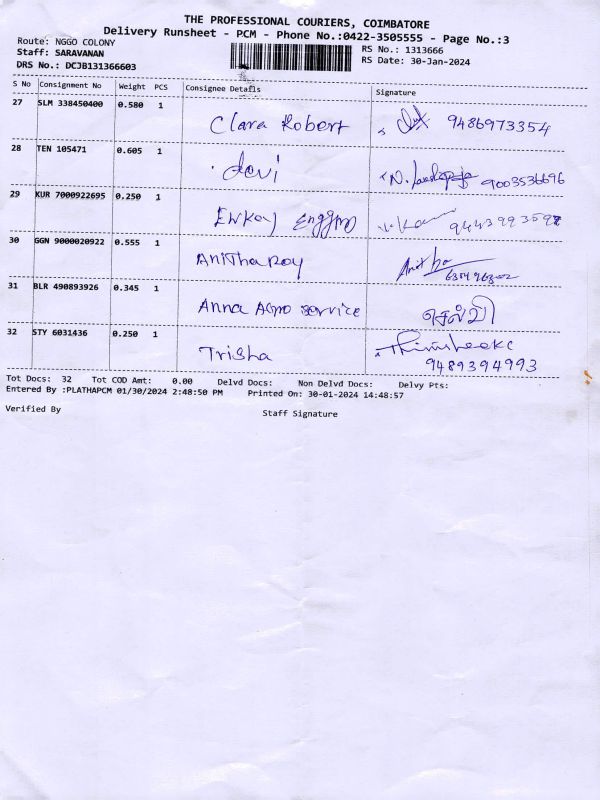 THE PROFESSIONAL COURIERS, COIMBATORE
Delivery Runsheet - PCM - Phone No.:0422-3505555 - Page No.:3
Route: NGGO COLONY
Staff: SARAVANAN
DRS No.: DCJB131366603
RS No.: 1313666
RS Date: 30-Jan-2024
S No Consignment No Weight PCS Consignee Details Signature
27 SLM 338450400 0.580 1 Clara Robert 9486973354
28 TEN 105471 0.605 1 devi N. 9003536696
29 KUR 7000922695 0.250 1 Enggrng
30 GGN 9000020922 0.555 1 Anitha Roy Anitha
31 BLR 490893926 0.345 1 Anna Agro service செல்வி
32 STY 6031436 0.250 1 Trisha
9489394993
Tot Docs: 32 Tot COD Amt: 0.00 Delvd Docs: Non Delvd Docs: Delvy Pts:
Entered By :PLATHAPCM 01/30/2024 2:48:50 PM Printed On: 30-01-2024 14:48:57
Verified By Staff Signature